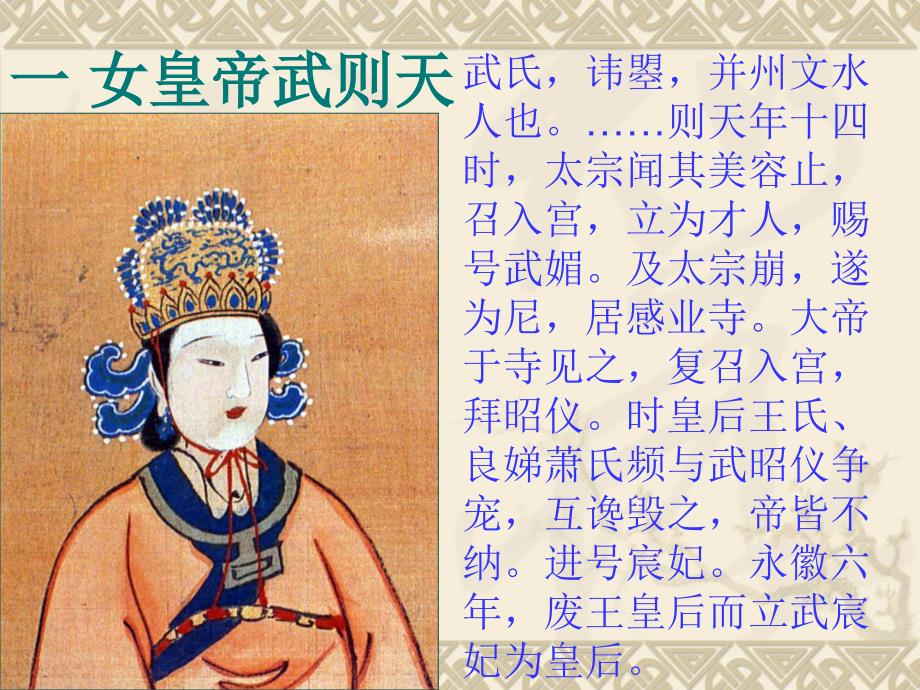 一 女皇帝武则天
武氏，讳曌，并州文水
人也。……则天年十四
时，太宗闻其美容止，
召入宫，立为才人，赐
号武媚。及太宗崩，遂
为尼，居感业寺。大帝
于寺见之，复召入宫，
拜昭仪。时皇后王氏、
良娣萧氏频与武昭仪争
宠，互谗毁之，帝皆不
纳。进号宸妃。永徽六
年，废王皇后而立武宸
妃为皇后。